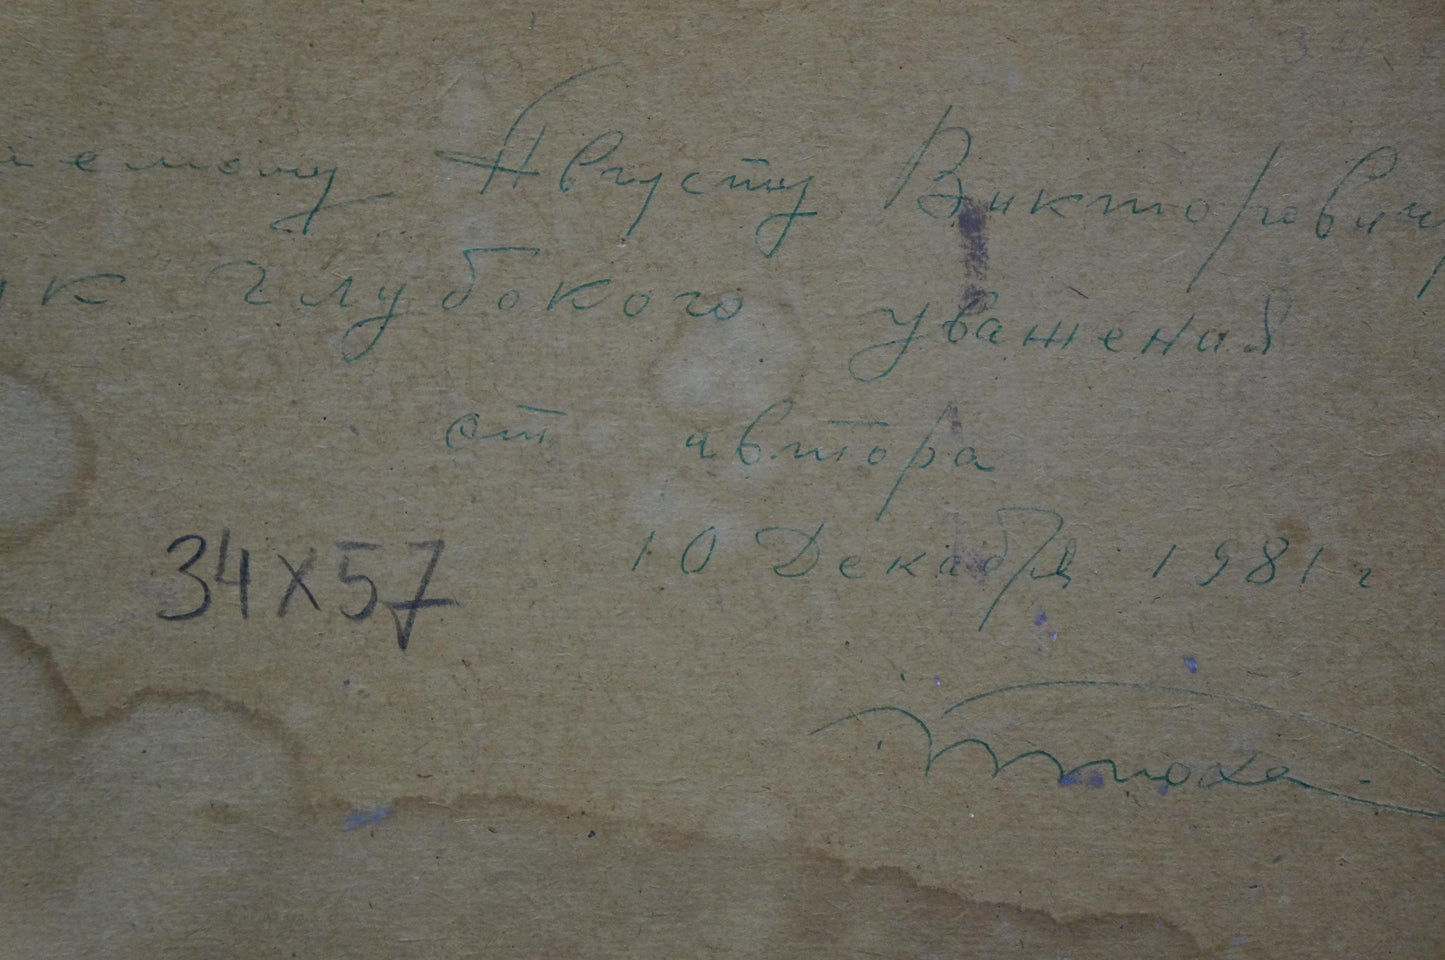 аемому Августу Викторовичу
ак глубокого уважения
от автора
34х57 10 Декабря 1981 г